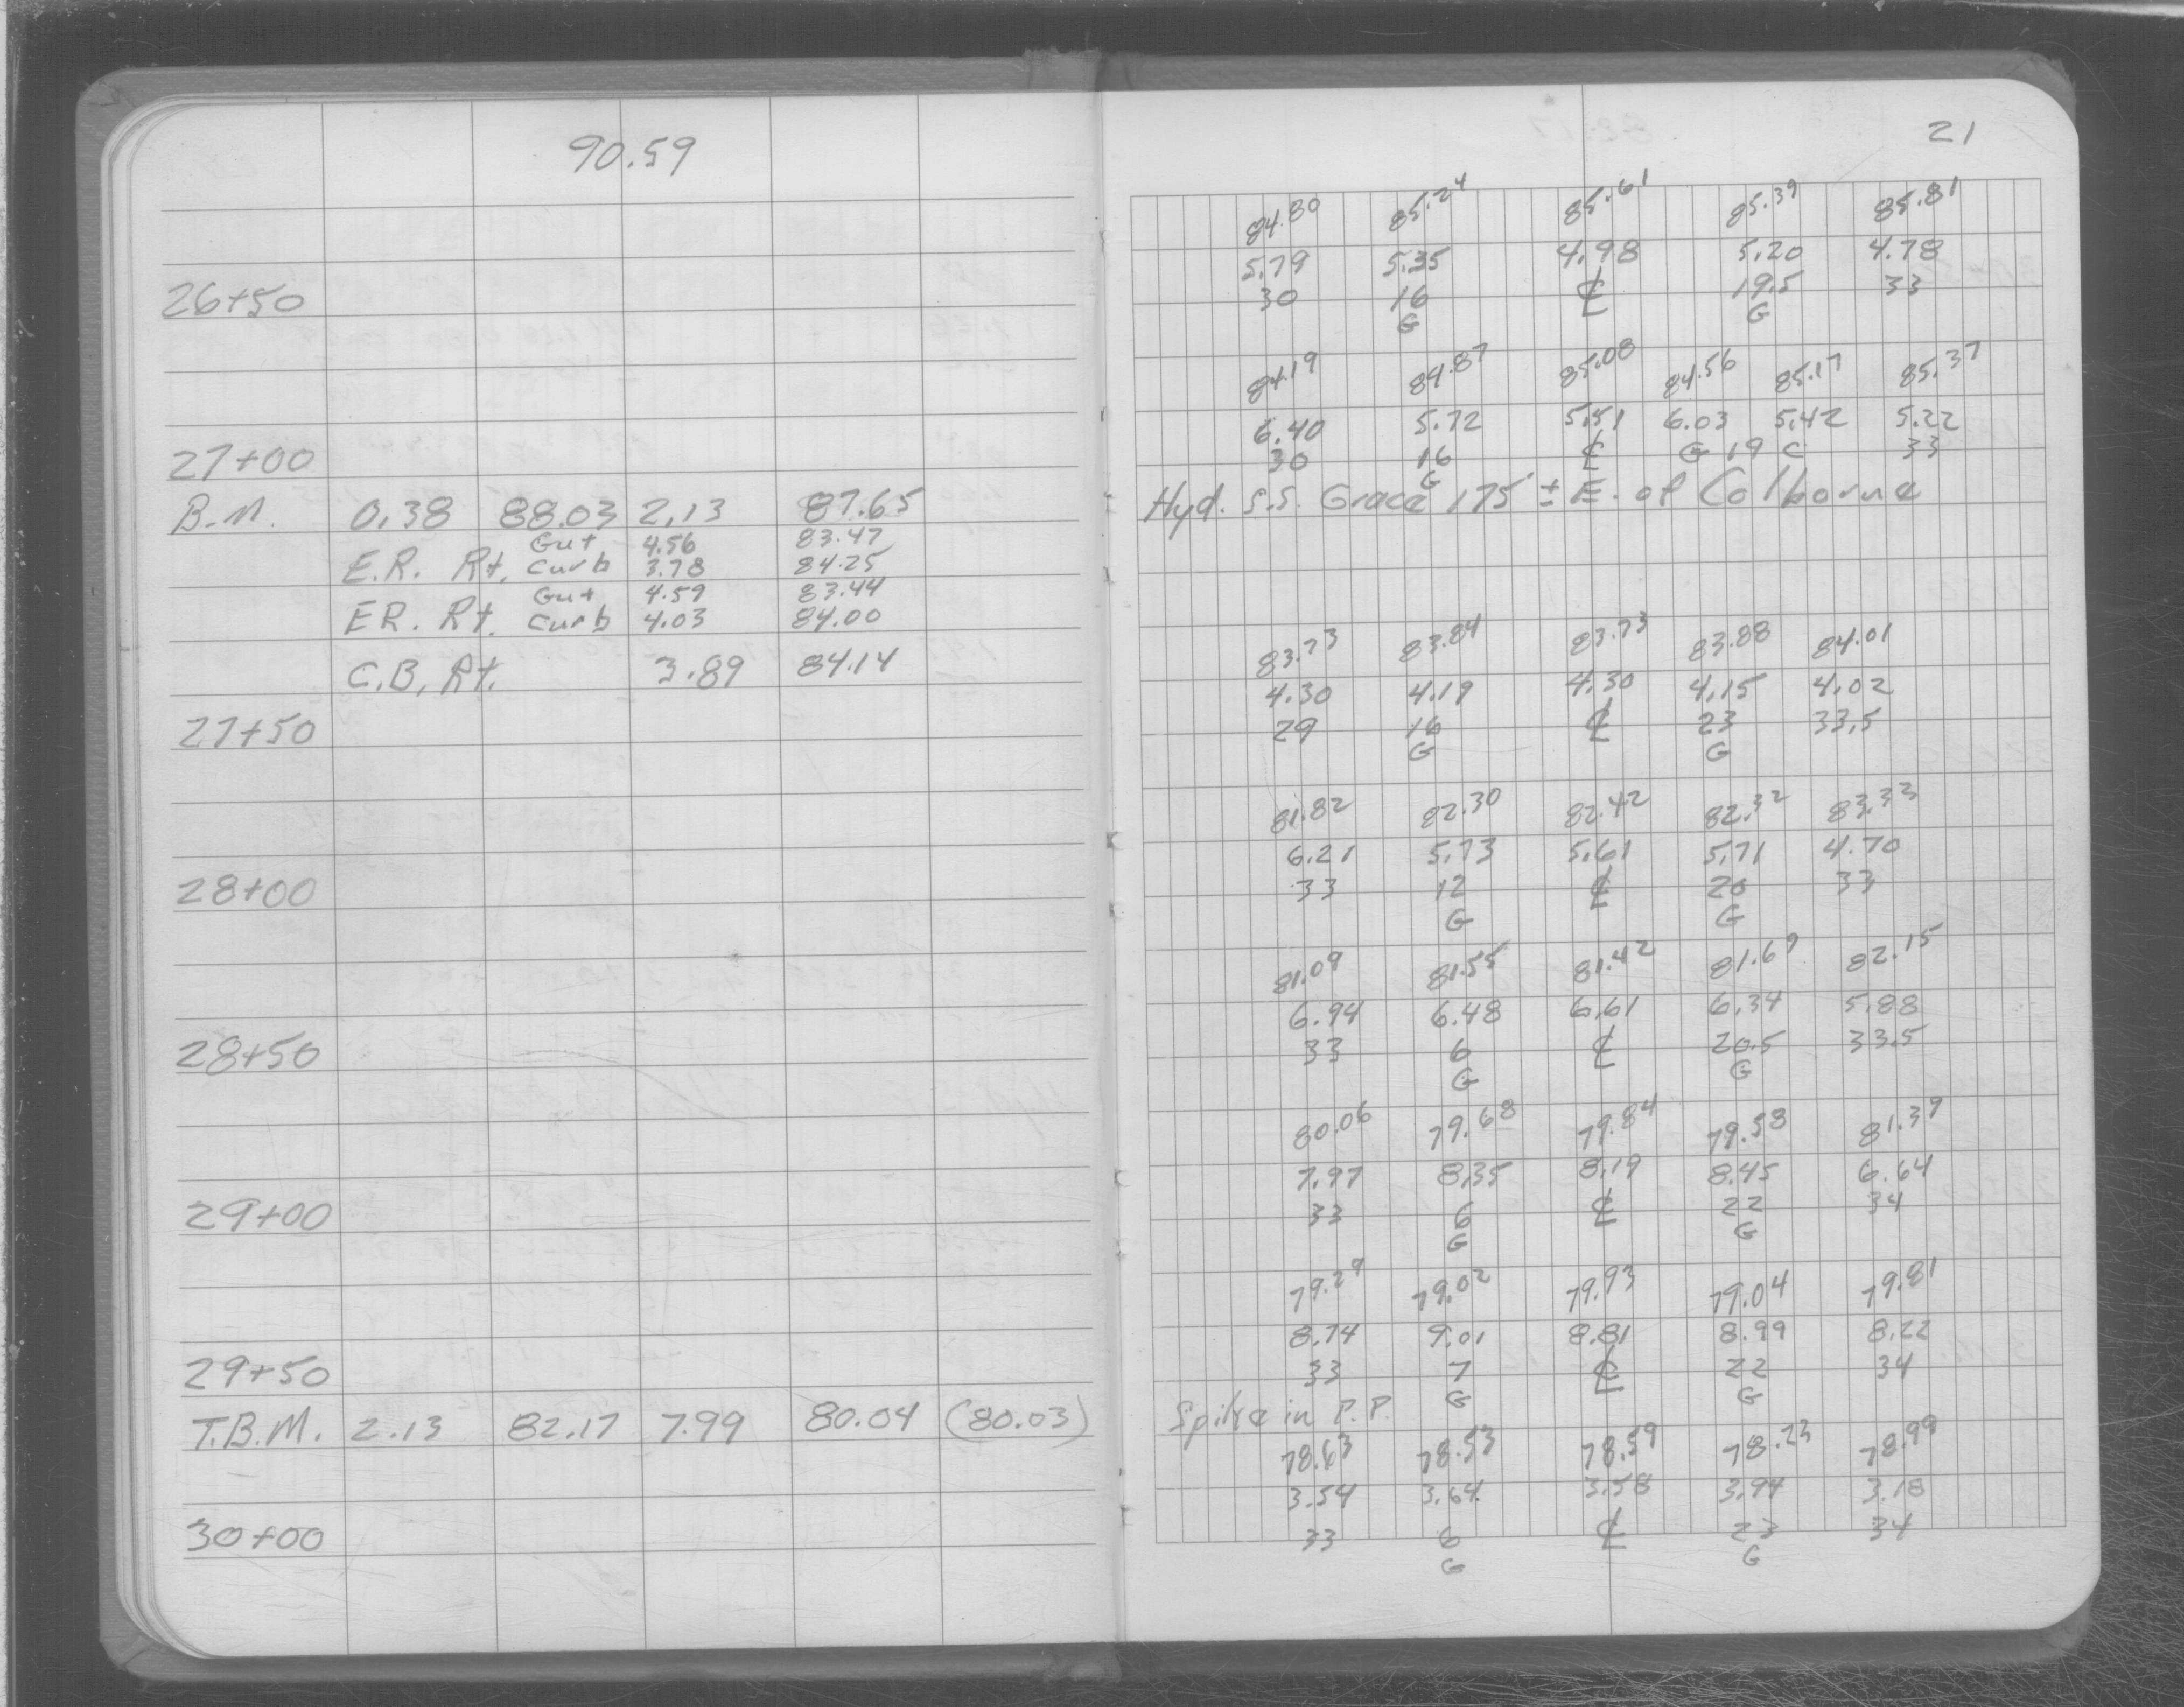 90.59
26+50
27+00
B.M. 0.38 88.03 2.13 87.65
Gut 4.56 83.47
E.R. Rt. Curb 3.78 84.25
Gut 4.59 83.44
E.R. Rt. Curb 4.03 84.00
C.B. Rt. 3.89 84.14
27+50
28+00
28+50
29+00
29+50
T.B.M. 2.13 82.17 7.99 80.04 (80.03)
30+00
21
84.80 85.24 85.61 85.39 85.81
5.79 5.35 4.98 5.20 4.78
30 16 ℄ 19.5 33
G G
84.19 84.87 85.08 84.56 85.17 85.37
6.40 5.72 5.51 6.03 5.42 5.22
30 16 ℄ G 19 C 33
G
Hyd. S.S. Grace 175' ± E. of Colborne
83.73 83.84 83.73 83.88 84.01
4.30 4.19 4.30 4.15 4.02
29 16 ℄ 23 33.5
G G
81.82 82.30 82.42 82.32 83.33
6.21 5.73 5.61 5.71 4.70
33 12 ℄ 20 33
G G
81.09 81.55 81.42 81.69 82.15
6.94 6.48 6.61 6.34 5.88
33 6 ℄ 20.5 33.5
G G
80.06 79.68 79.84 79.58 81.39
7.97 8.35 8.19 8.45 6.64
33 6 ℄ 22 34
G G
79.29 79.02 79.93 79.04 79.81
8.74 9.01 8.81 8.99 8.22
33 7 ℄ 22 34
G G
Spike in P.P.
78.63 78.53 78.59 78.23 78.99
3.54 3.64 3.58 3.94 3.18
33 6 ℄ 23 34
G G